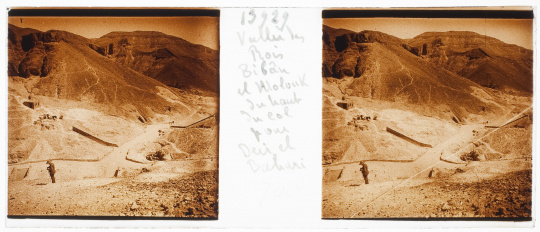 13929
Vallée des
Rois
Bibân
el Molouk
du haut
du col
pour
Deir el
Bahari